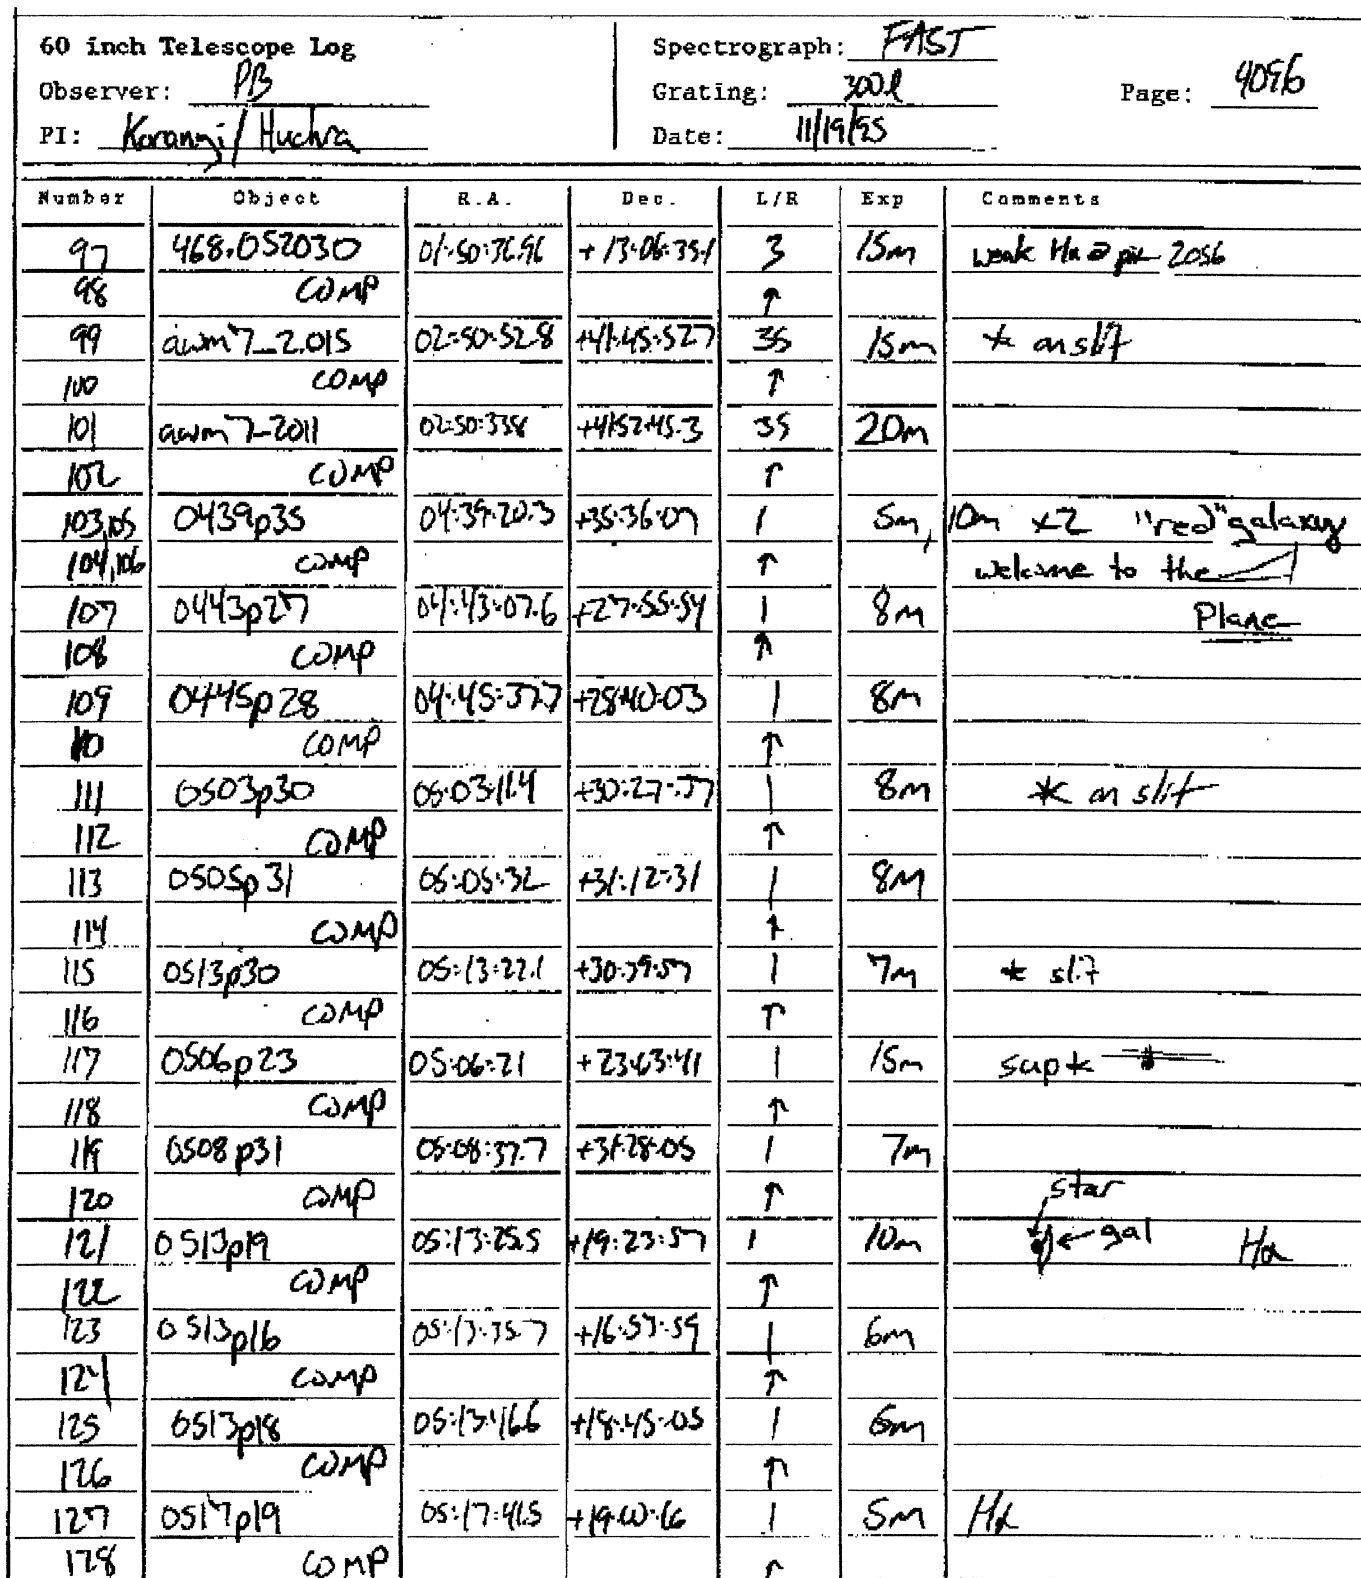 60 inch Telescope Log Spectrograph: FAST
Observer: PB Grating: 300l Page: 4096
PI: Koranyi/Huchra Date: 11/19/95
Number Object R.A. Dec. L/R Exp Comments
97 468.052030 01:50:36.96 +13:06:35.1 3 15m weak Hα @ pix 2056
98 COMP ↑
99 awm7_2.015 02:50:52.8 +41:45:52.7 35 15m * on slit
100 COMP ↑
101 awm7_2011 02:50:33.8 +41:52:45.3 35 20m
102 COMP ↑
103,105 0439p35 04:39:20.3 +35:36:07 1 5m, 10m x2 "red" galaxy
104,106 COMP ↑ welcome to the
107 0443p27 04:43:07.6 +27:55:54 1 8m Plane
108 COMP ↑
109 0445p28 04:45:37.7 +28:40:03 1 8m
110 COMP ↑
111 0503p30 05:03:11.4 +30:27:37 1 8m * on slit
112 COMP ↑
113 0505p31 05:05:32 +31:12:31 1 8m
114 COMP ↑
115 0513p30 05:13:22.1 +30:39:57 1 7m * slit
116 COMP ↑
117 0506p23 05:06:21 1 15m
118 COMP ↑
119 0508p31 05:08:37.7 +31:28:05 1 7m
120 COMP ↑ star
121 0513p19 05:13:25.5 +19:23:57 1 10m ← gal Hα
122 COMP ↑
123 0513p16 05:13:35.7 +16:53:59 1 6m
124 COMP ↑
125 0513p18 05:13:46.6 +18:45:05 1 6m
126 COMP ↑
127 0517p19 05:17:41.5 +19:40:16 1 5m Hα
128 COMP ↑